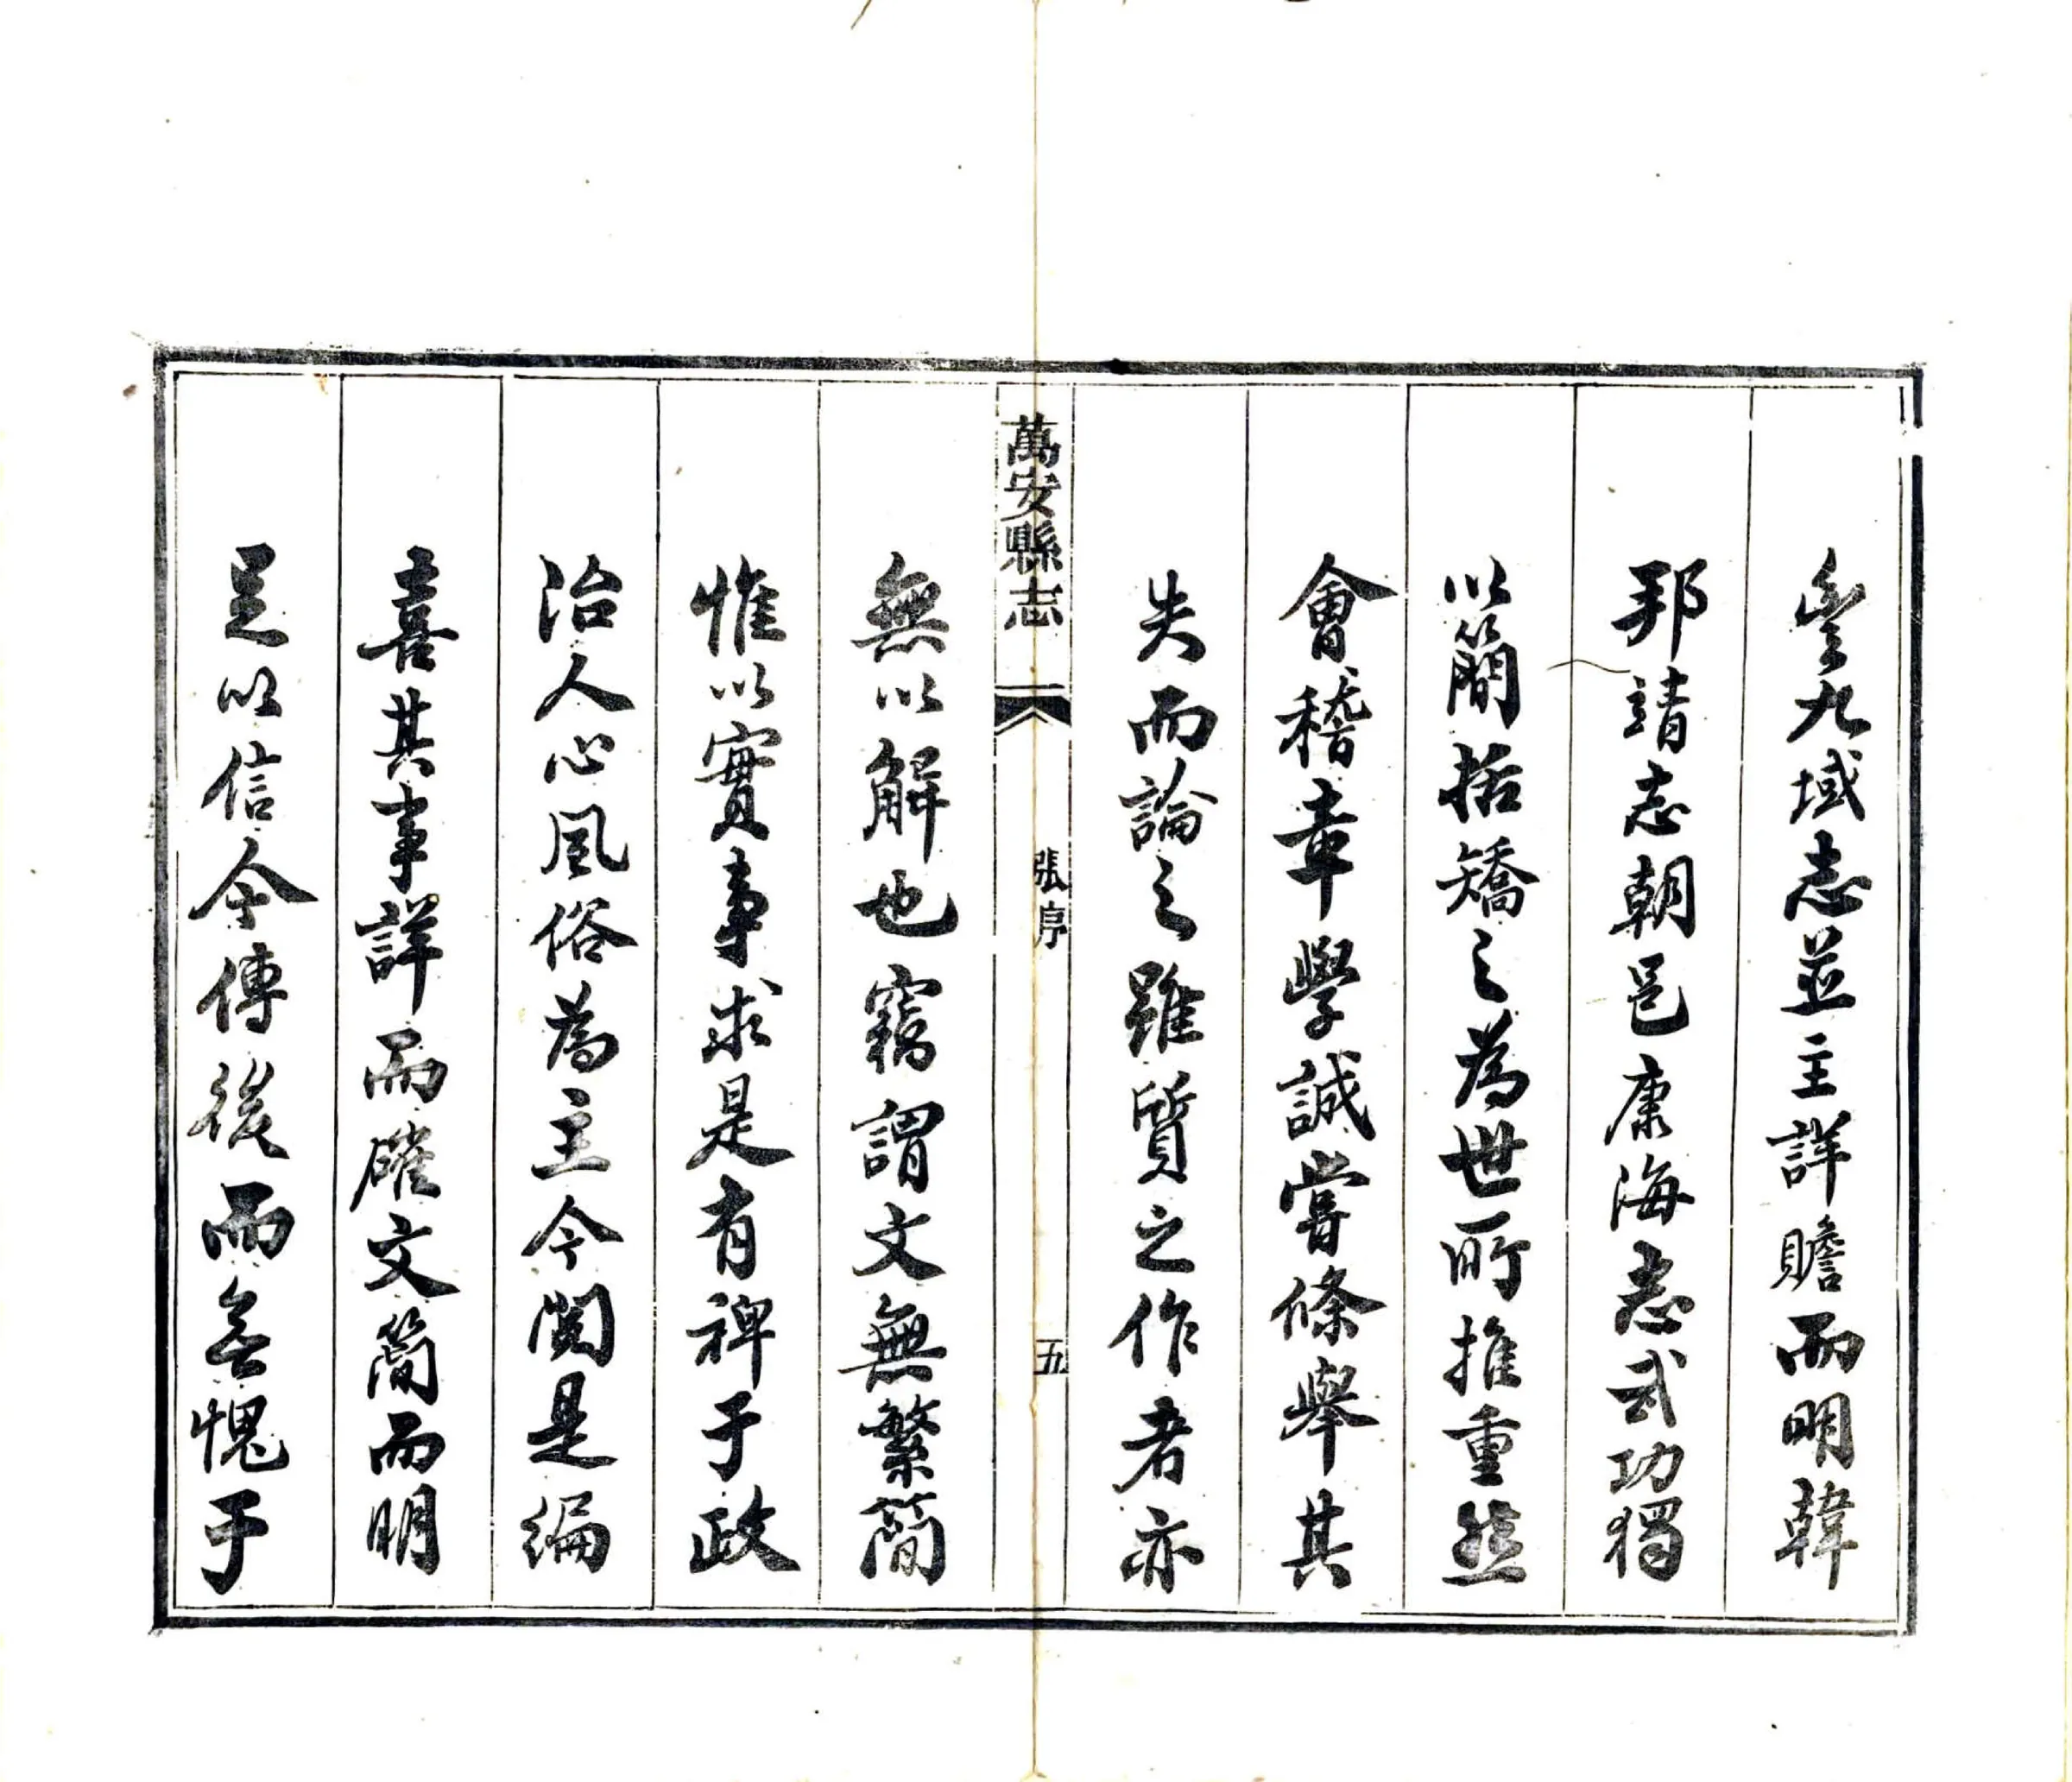 豐九域志並主詳贍而明韓
邦靖志朝邑康海志武功獨
以簡括矯之為世所推重然
會稽章學誠嘗條舉其
失而論之雖質之作者亦
萬安縣志
張序
五
無以解也竊謂文無繁簡
惟以實事求是有裨于政
治人心風俗為主今閱是編
喜其事詳而確文簡而明
足以信今傳後而無愧于